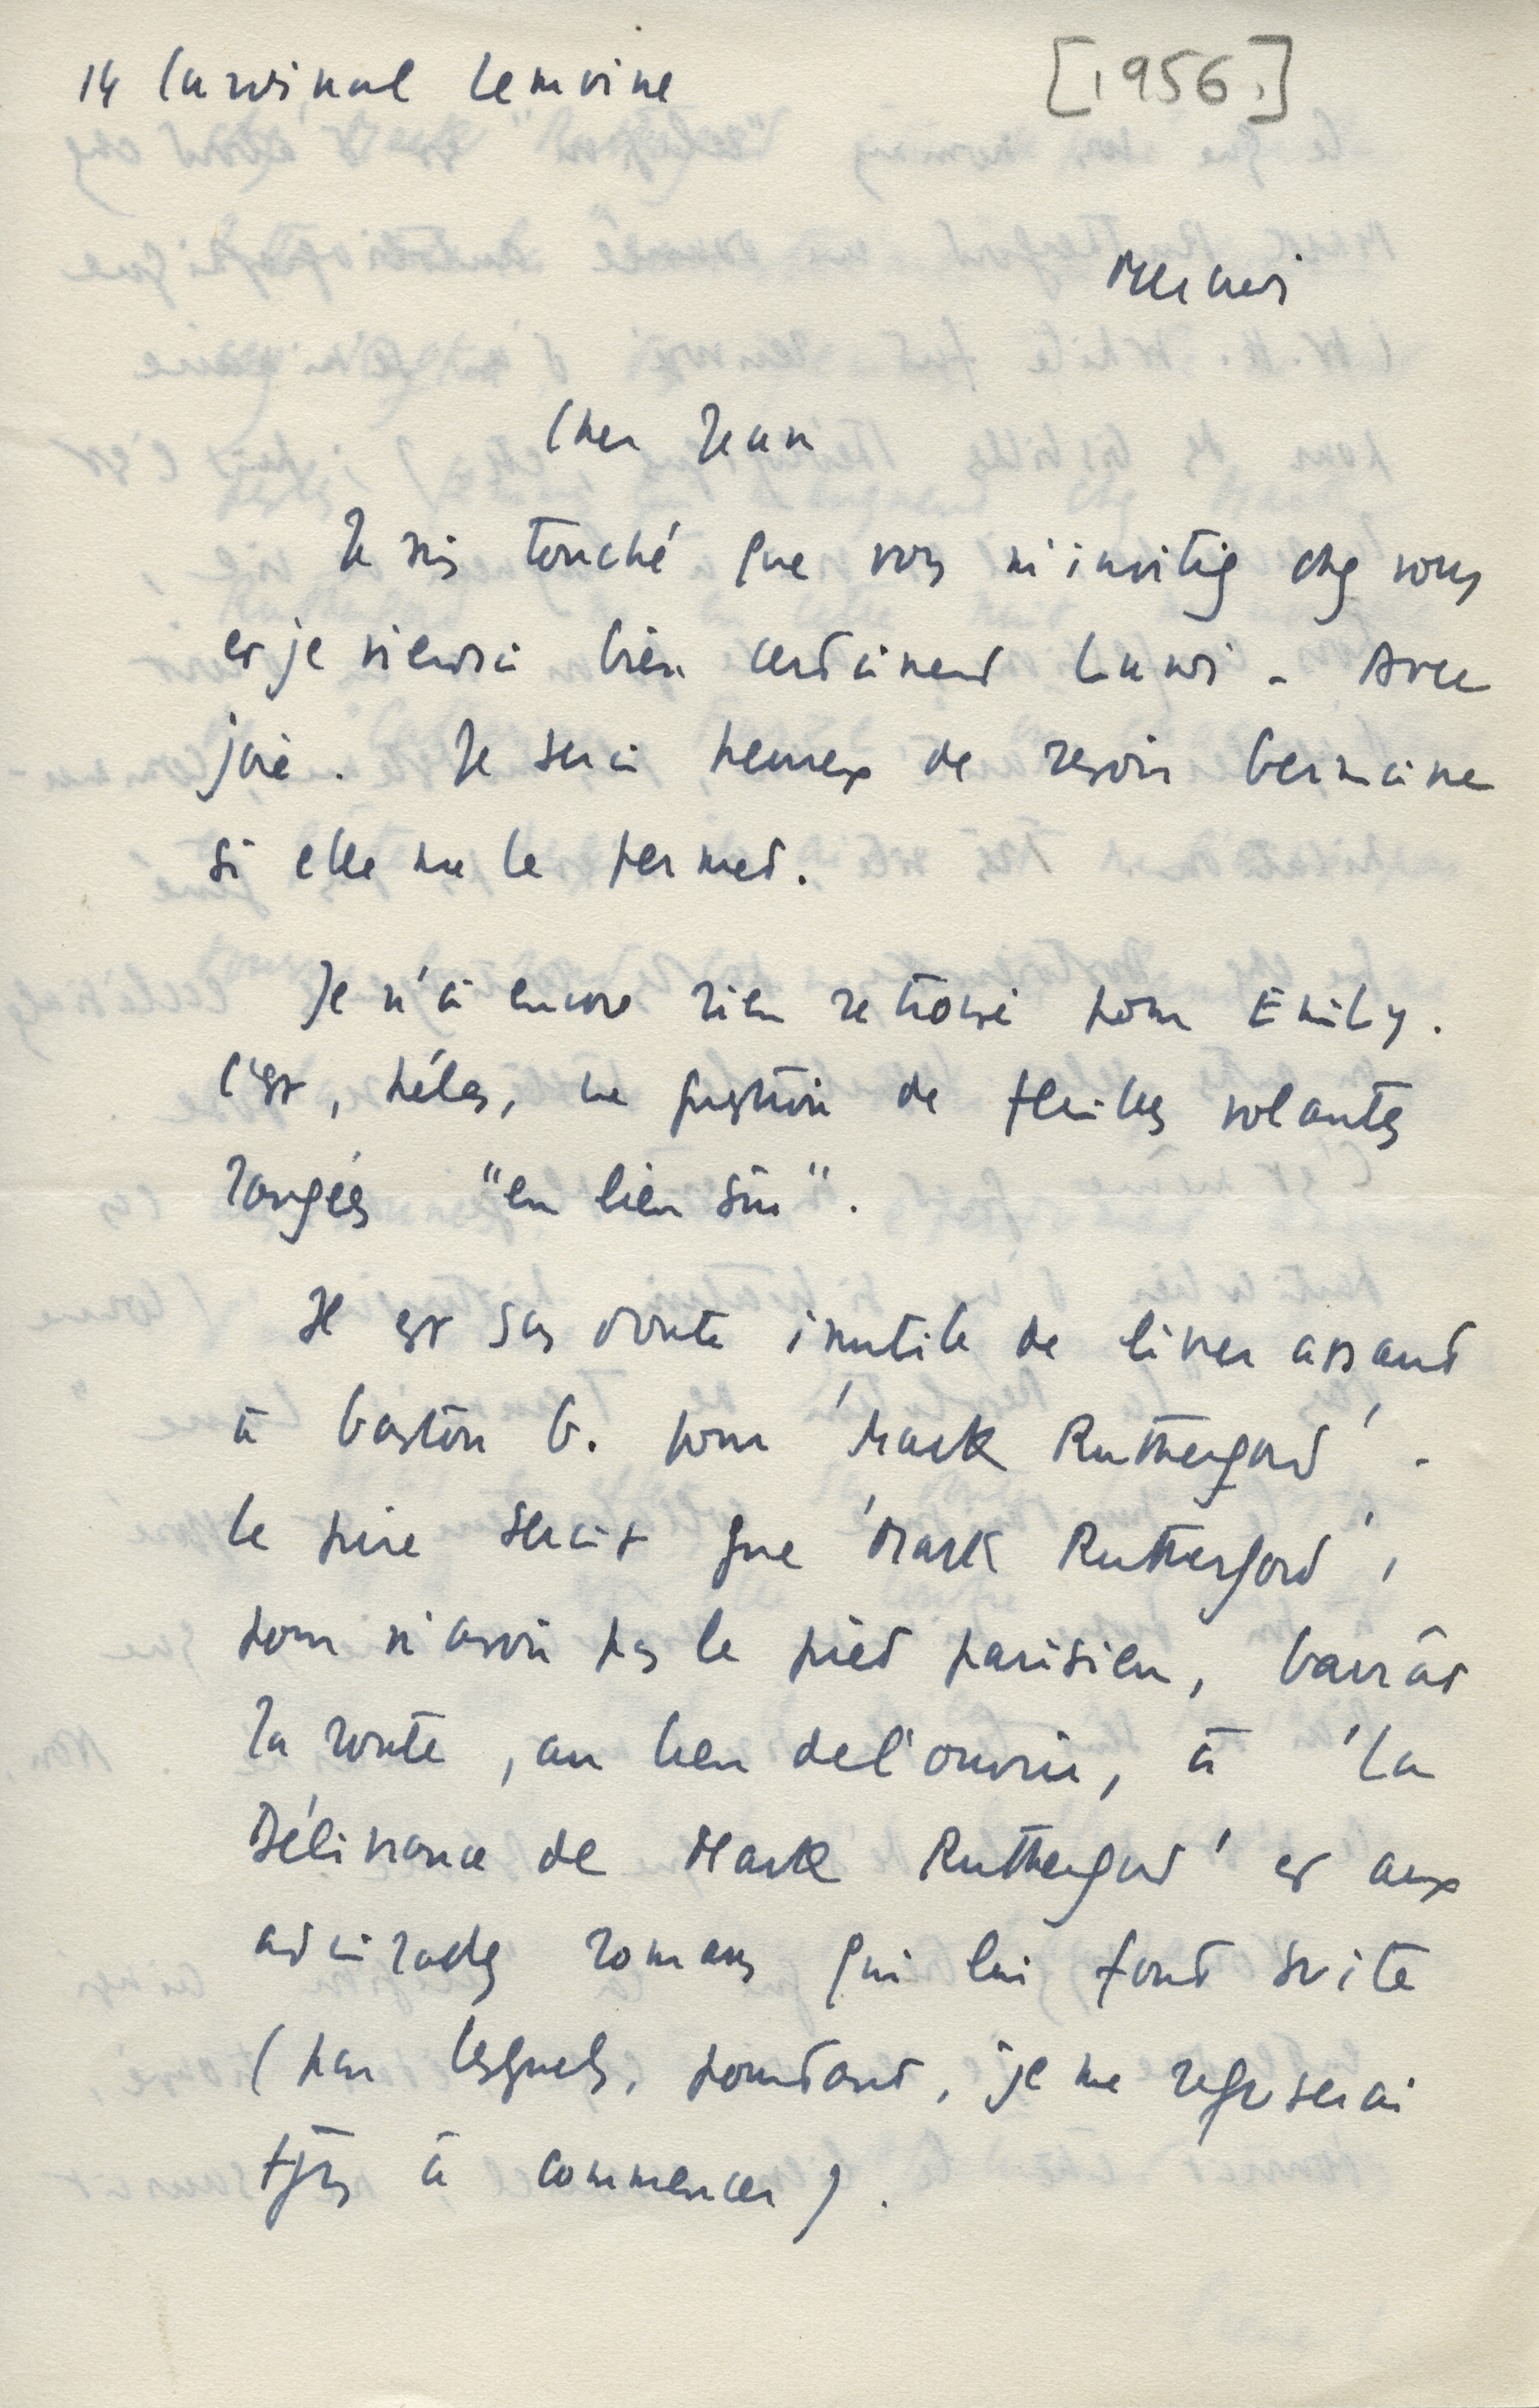 14 Cardinal Lemoine
[1956.]
Mercredi
Cher Jean
Je suis touché que vous m'invitiez chez vous
et je viendrai bien certainement lundi. Avec
joie. Je serai heureux de revoir Germaine
si elle me le permet.
Je n'ai encore rien retrouvé pour Emily.
C'est, hélas, une question de feuilles volantes
rangées "en lieu sûr".
Il est sans doute inutile de livrer assaut
à Gaston G. pour 'Mark Rutherford'.
Le pire serait que 'Mark Rutherford',
pour n'avoir pas le pied parisien, barrât
la route, au lieu de l'ouvrir, à 'La
Délivrance de Mark Rutherford' et aux
admirables romans qui lui font suite
(par lesquels, pourtant, je me refuserai
tjrs à commencer).